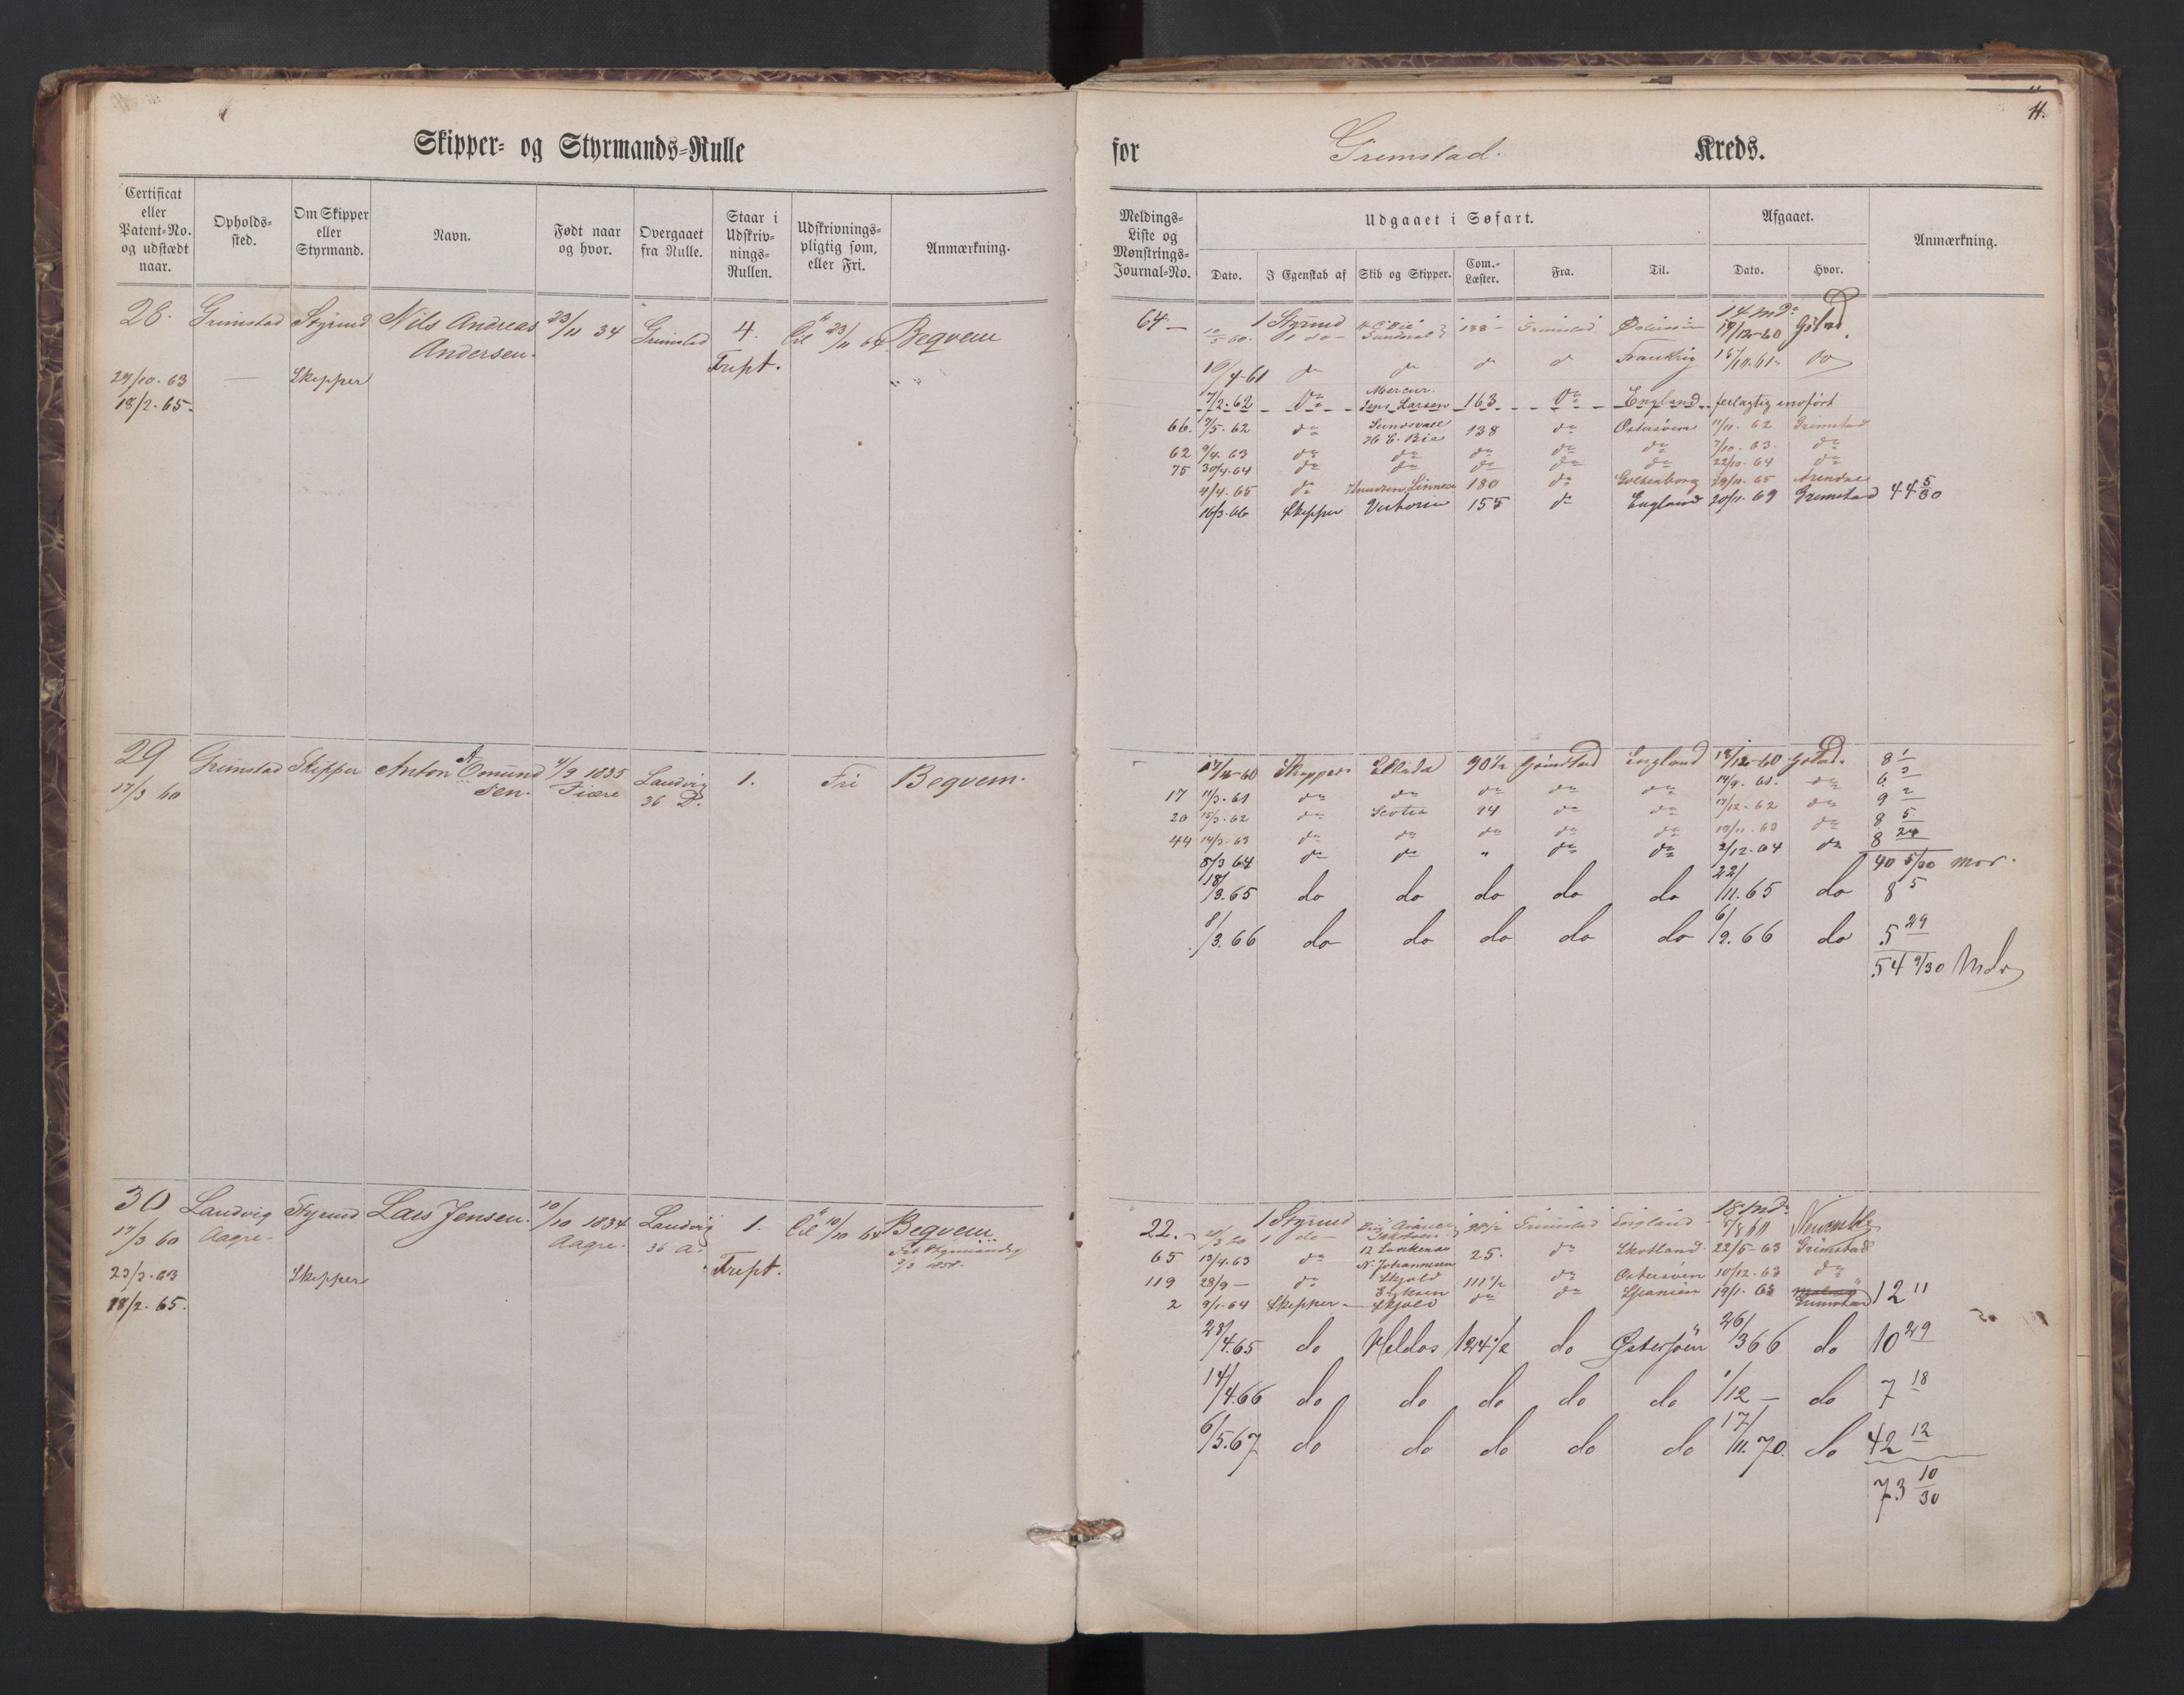 11.
Skipper- og Styrmands-Rulle for Grimstad. Kreds.
Certificat eller Patent-No. og udstædt naar.
Opholds-sted.
Om Skipper eller Styrmand.
Navn.
Født naar og hvor.
Overgaaet fra Rulle.
Staar i Udskriv-nings-Rullen.
Udskrivnings-pligtig som, eller Fri.
Anmærkning.
Meldings-Liste og Mønstrings-Journal-No.
Udgaaet i Søfart.
Dato. I Egenskab af Skib og Skipper. Com.-Læster. Fra. Til.
Afgaaet.
Dato. Hvor.
Anmærkning.
28. Grimstad Styrmd Nils Andreas 23/11 34 Grimstad 4. 23/11 64 Begvem
Andersen.
Frept.
29/10. 63 — Skipper
18/2. 65.
64 — 1 Styrmd 138 Grimstad 14 Md
10/5 60. 1 do 18/12-60
16/4-61 do do do do Frankrig 16/10.61 do
7/2.62 do Mercur. Jens Larsen 163 do England feilagtig indført
66. 7/5. 62 do Sundsvall H C. Bie 138 do Østersøen 11/11. 62 Grimstad
62 9/4. 63 do do do do do 7/10. 63. do
75 30/4.64 do do do do do 22/10. 64 do
4/4. 65 do Linnea 180 do Gothenborg 29/11. 65 Arendal
16/3.66 Skipper Victoria 155 do England 20/11. 69 Grimstad 44 5/30
29 Grimstad Skipper Anton A. Omund 4/9 1835 Landvig 1. Fri Begvem.
17/3 60 sen. Fiære 36 P.
17/4-60 Skipper Ellida 90½ Grimstad England 18/12-60 Gstad. 8 1
17 11/3. 61 do do do do do 14/9. 61. do 6 3
20 15/3. 62 do Scotia 94 do do 17/12. 62 do 9 2
44 14/3. 63 do do do do do 19/11. 63 do 8 5
8/3 64 do do " do do 2/12.64 do 8 24
40 5/30 mdr.
18/3.65 do do do do do 22/11.65 do 8 5
8/3.66 do do do do do 6/9.66 do 5 29
54 9/30 Mdr
30 Landvig Styrmd Lars Jensen. 10/10 1834 Landvig 1. 10/10 64 Begvem
17/3 60 Aagre. Aagre. 36 A. Frept.
23/3. 63 Skipper
18/2. 65.
22. 1 Styrmd Grimstad England 18 Md
1 do 8/8 60
65 13/4.63 do N. Johannesen 25. do Skotland 22/5-63 Grimstad
119 28/9 — do Skjold 111½ do Østersøen 10/12.63 do
2 9/1.64 Skipper Skjold do do Spanien 19/1. 65 Grimstad 12 11
28/4.65 do Heldos 124½ do Østersøen 26/3 66 do 10 29
14/4.66 do do do do do 1/12 — do 7 18
6/5.67 do do do do do 17/11.70. do 42 12
73 10/30